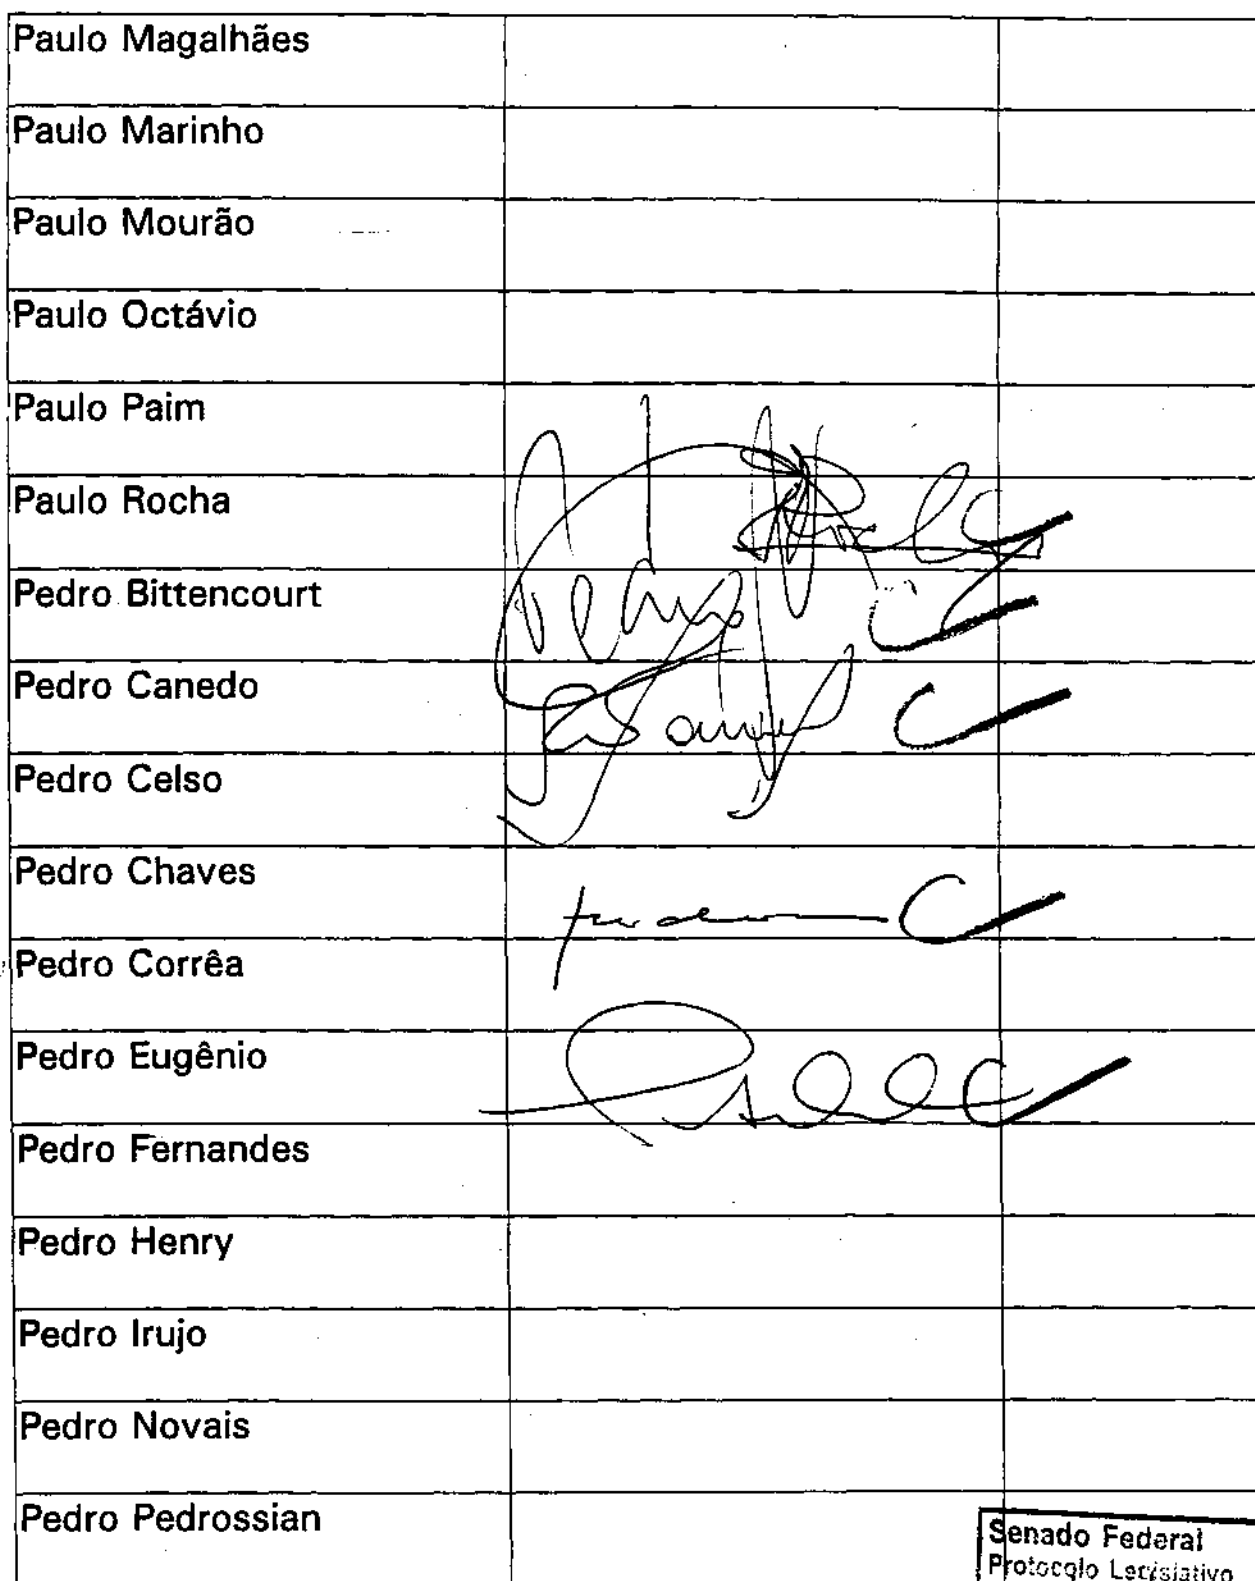 Paulo Magalhães
Paulo Marinho
Paulo Mourão
Paulo Octávio
Paulo Paim
Paulo Rocha
Pedro Bittencourt
Pedro Canedo
Pedro Celso
Pedro Chaves
Pedro Corrêa
Pedro Eugênio
Pedro Fernandes
Pedro Henry
Pedro Irujo
Pedro Novais
Pedro Pedrossian
Senado Federal
Protocolo Legislativo